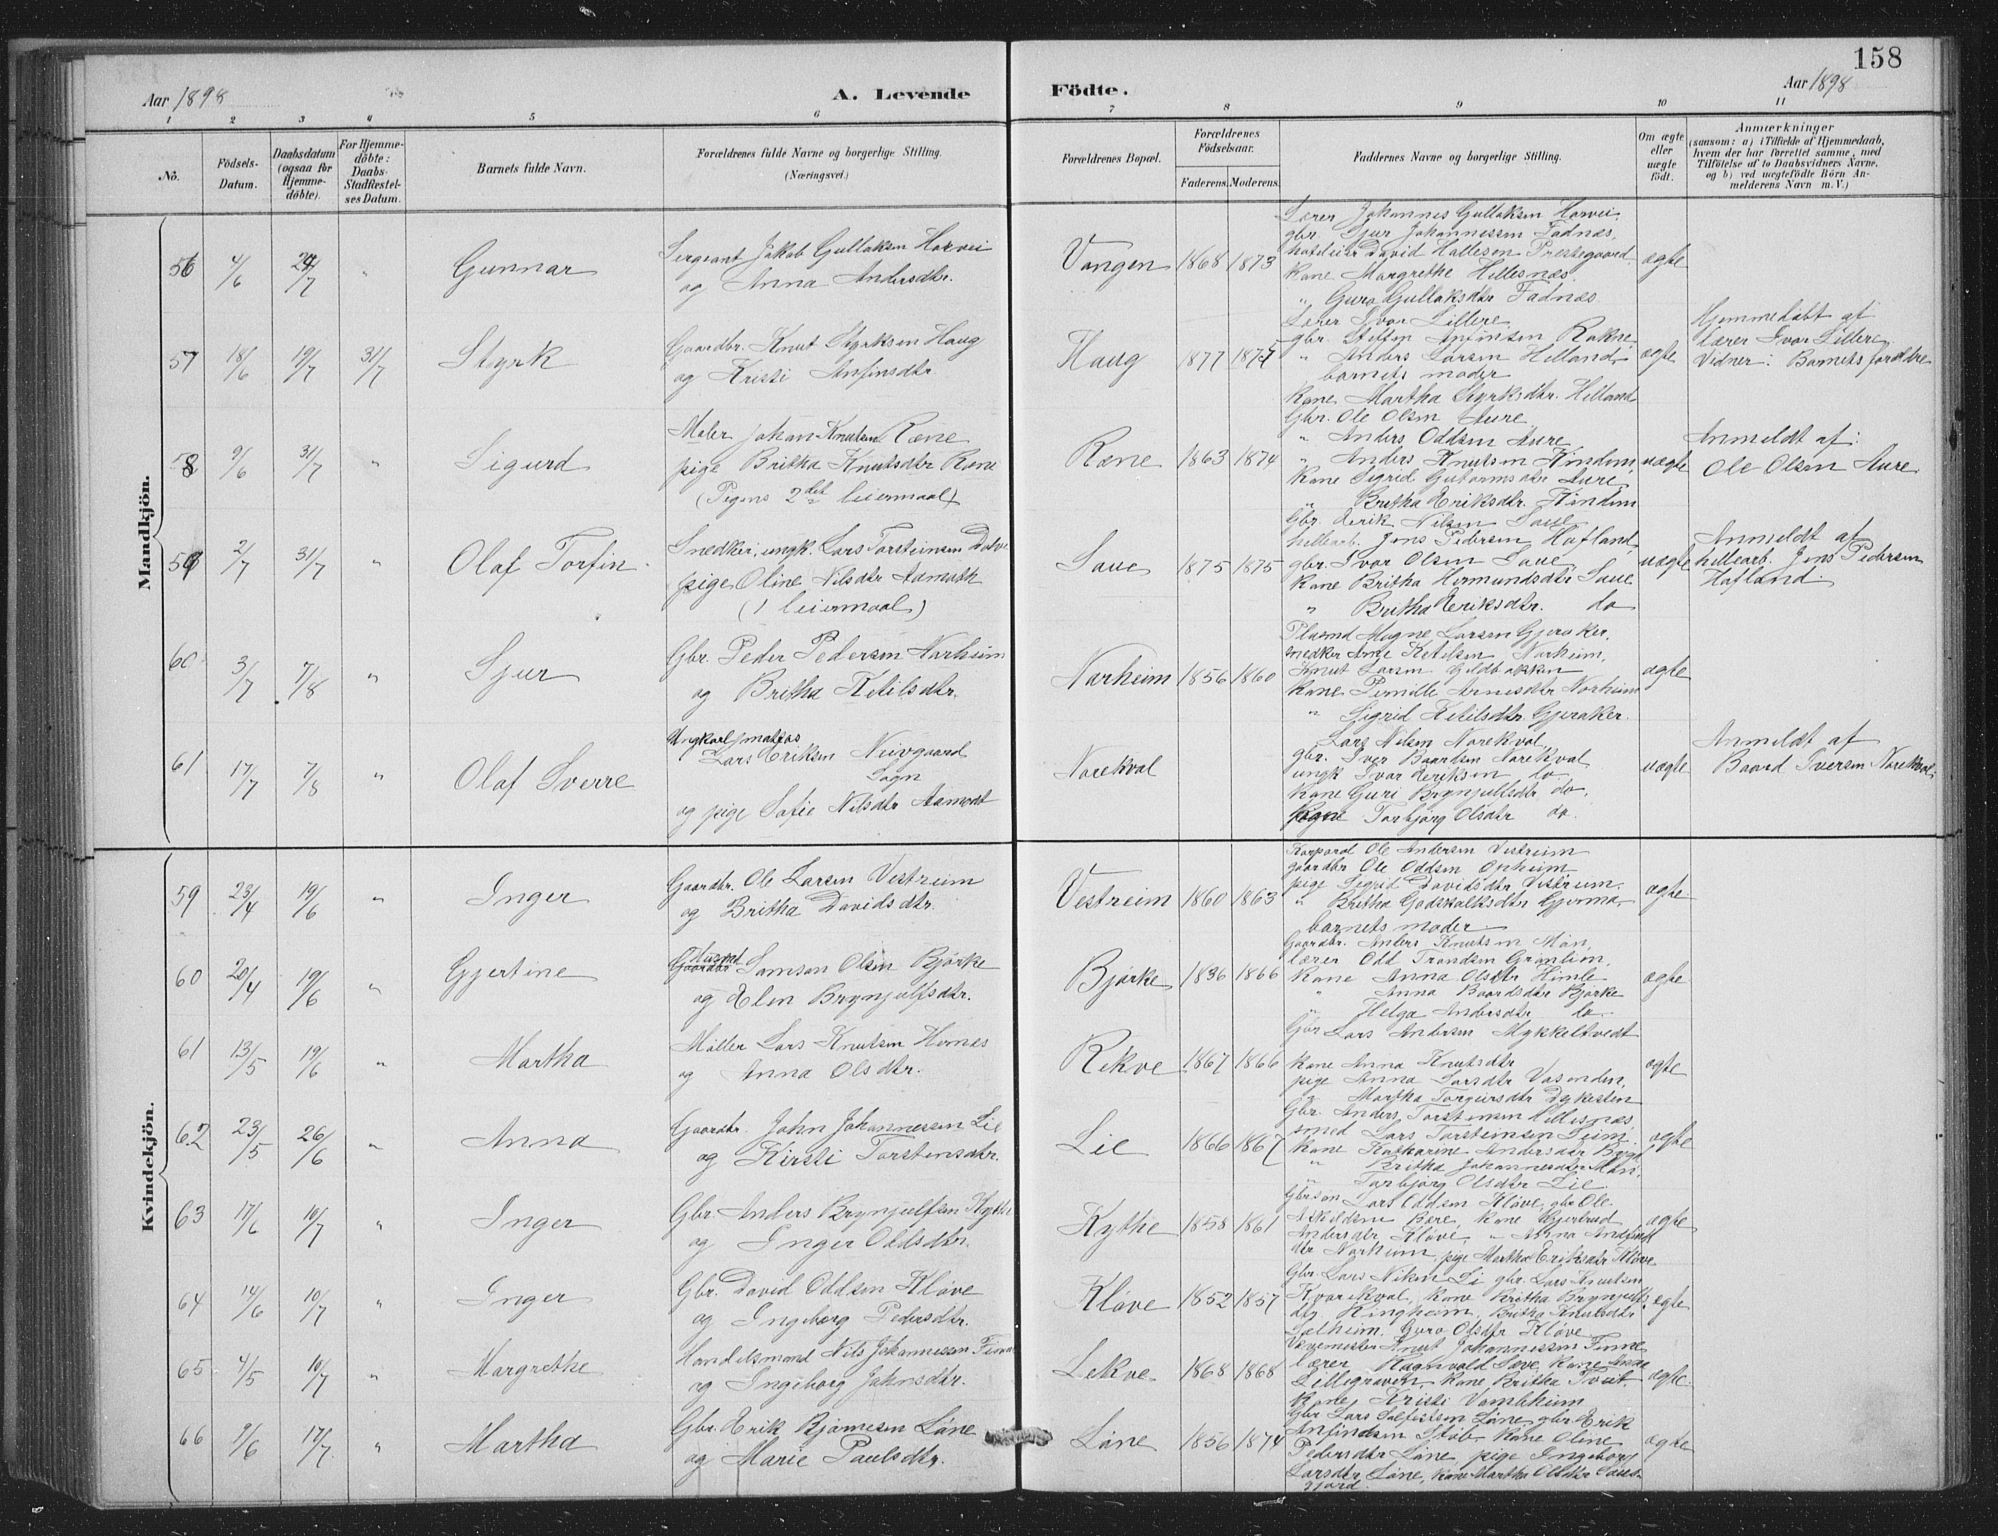 158
Aar 1898
A. Levende
Födte.
Aar 1898
1 2 3 4 5 6 7 8 9 10 11
No.
Födsels-
Datum.
Daabsdatum
(ogsaa for
Hjemme-
döbte).
For Hjemme-
döbte:
Daabs-
Stadfæstel-
ses Datum.
Barnets fulde Navn.
Forældrenes fulde Navne og borgerlige Stilling.
(Næringsvei.)
Forældrenes Bopæl.
Forældrenes
Födselsaar.
Faderens. Moderens.
Faddernes Navne og borgerlige Stilling.
Om ægte
eller
uægte
födt.
Anmærkninger
(saasom: a) i Tilfælde af Hjemmedaab,
hvem der har forrettet samme, med
Tilföielse af to Daabsvidners Navne,
og b) ved uægtefödte Börn An-
melderens Navn m. V.)
Mandkjön.
56 4/6 24/7 " Gunnar
Sergeant Jakob Gullaksen Horvei
og Anna Andersdtr.
Vangen 1868 1873
Lærer Johannes Gullaksen Horvei.
gbr. Sjur Johannessen Fadnæs,
David Hallesen Prestegaard,
Kone Margrethe Hillesnæs
" Guro Gullaksdtr Fadnæs
ægte
57 18/6 19/7 31/7 Styrk
Gaardbr. Knut Styrksen Haug
og Kristi Anfinsdtr.
Haug 1877 1875
Lærer Ivar Lillere
gbr. Steffen Anfinsen Rokne,
" Anders Larsen Helland,
barnets moder
Kone Martha Styrksdtr. Helland
ægte
Hjemmedøbt af
Lærer Ivar Lillere
Vidner: Barnets forældre
58 9/6 31/7 " Sigurd
Maler Johan Knutsen Rene
pige Britha Knutsdtr Rene
(Pigens 2det leiermaal)
Rene 1863 1874
Gbr. Ole Olsen Aure
" Anders Oddsen Aure
" Anders Knutsen Kindem,
Kone Sigrid Guttormsdtr Aure
" Britha Eriksdtr. Kindem
uægte
Anmeldt af:
Ole Olsen Aure.
59 2/7 31/7 " Olaf Torfin
Snedker, ungk. Lars Torsteinsen Dolve
pige Oline Nilsdtr Aamoth
(1 leiermaal)
Saue 1875 1875
Gbr. Eerik Nilsen Saue
hellearb. Jens Pedersen Hafland,
gbr. Ivar Olsen Saue,
Kone Britha Hermundsdtr Saue
" Britha Eeriksdtr. do
uægte
Anmeldt af
hellearb. Jens Pedersen
Hafland
60 3/7 7/8 " Sjur
Gbr. Peder Pedersen Norheim
og Britha Ketilsdtr.
Norheim 1856 1860
Plasmd Mogne Larsen Gjeraker,
snedker Arne Ketilsen Norheim,
Knut Larsen Gildbakken
Kone Pernille Arnesdtr Norheim
" Sigrid Ketilsdtr. Gjeraker.
ægte
61 17/7 7/8 " Olaf Sverre
Ungkarl, matros
Lars Eriksen Nuvgaard
Sogn
og pige Sofie Nilsdtr Aamodt
Norekval
Lars Nilsen Norekval,
gbr. Iver Baardsen Norekval
ungk Ivar Eeriksen do,
Kone Guri Brynjulfsdtr do.
pige Torbjørg Olsdtr do.
uægte
Anmeldt af
Baard Iversen Norekval.
Kvindekjön.
59 23/4 19/6 " Inger
Gaardbr. Ole Larsen Vestreim
og Britha Davidsdtr.
Vestreim 1860 1863
Korporal Ole Andersen Vestreim
gaardbr Ole Oddsen Opheim
pige Sigrid Davidsdtr Vestreim.
" Britha Godskalksdtr Gjerme,
barnets moder
ægte
60 20/4 19/6 " Gjertine
Husmd
Gaardbr Samson Olsen Bjørke
og Elen Brynjulfsdtr.
Bjørke 1836 1866
Gaardbr. Anders Knutsen Møn,
lærer Odd Trondsen Grønlien,
Kone Anna Olsdtr Himle
" Anna Baardsdtr Bjørke
" Helga Andersdtr do.
ægte
61 13/5 19/6 " Martha
Møller Lars Knutsen Hornes
og Anna Olsdtr.
Rekve 1867 1866
Gbr Lars Andersen Mykkeltvedt
Kone Anna Knutsdtr
pige Anna Larsdtr Vasenden,
" Martha Torgersdtr Dykesten
ægte
62 23/5 26/6 " Anna
Gaardbr. John Johannessen Lie
og Kirsti Torstensdtr.
Lie 1866 1867
Gbr. Anders Torstensen Hellesnæs
smed Lars Torsteinsen Seim.
Kone Katharine Andersdtr
" Britha Johannesdtr Møn,
" Torbjørg Olsdtr Lie.
ægte
63 17/6 10/7 " Inger
Gbr Anders Brynjulfsen Kythe
og Inger Oldsdtr.
Kythe 1858 1861
Gbrsøn Lars Oddsen Kløve, gbr Ole
Askildsen Bere, Kone Gjertrud
Andersdtr Kløve " Anna
dtr Norheim, pige Martha Eriksdtr Kløve
ægte
64 14/6 10/7 " Inger
Gbr. David Oddsen Kløve
og Ingeborg Pedersdtr.
Kløve 1852 1857
Gbr. Lars Nilsen Li gbr. Lars Knutsen
Kvarekval, Kone Britha Brynjulfs
dtr Ringheim, Britha Knutsdtr
Sølheim. Guro Olsdtr Kløve
ægte
65 4/5 10/7 " Margrethe
Handelsmand Nils Johannessen Finne
og Ingeborg Johnsdtr.
Lekve 1868 1868
Knut Johannessen Finne
lærer Ragnvald Sæve, Kone Anna
Lillegraven, Kone Britha Tvet,
Kone Kristi Vambheim
ægte.
66 9/6 17/7 " Martha
Gbr. Erik Bjørnesen Løne
og Marie Paulsdtr.
Løne 1856 1874
Gbr Lars Løne gbr Erik
Anfindsen Støb Kone Oline
Pedersdtr Løne pige Ingeborg
Larsdtr Løne, Kone Martha Olsdtr
ægte